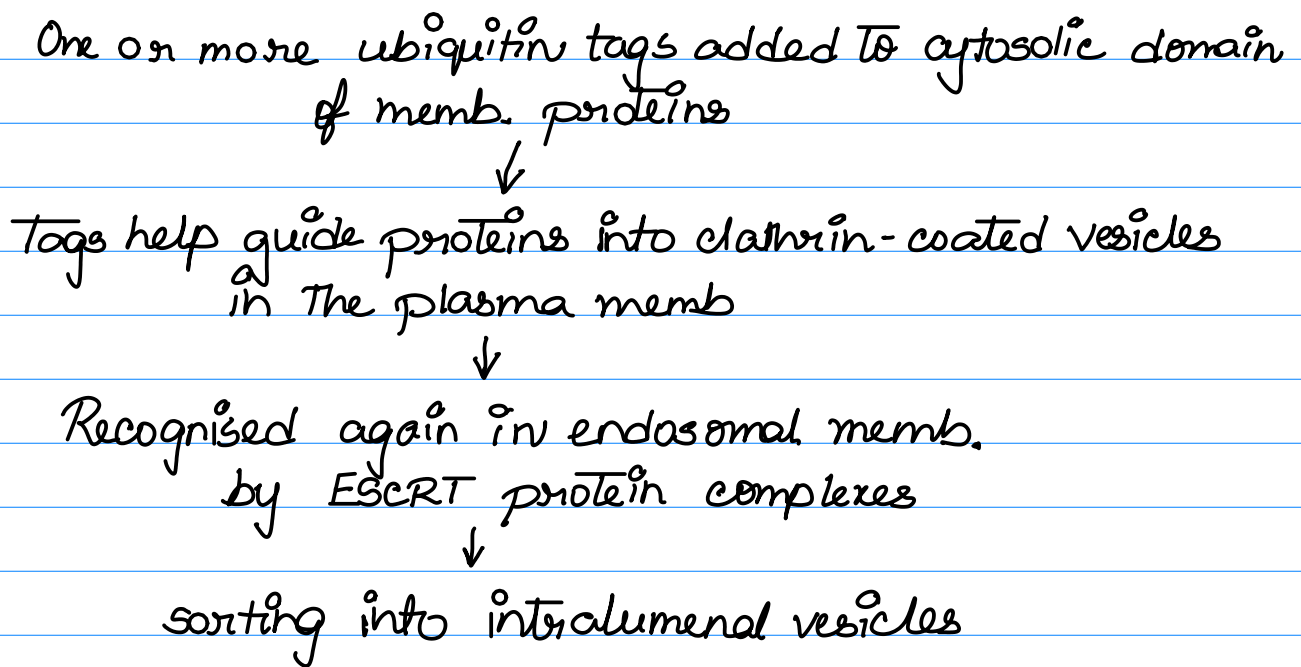 One or more ubiquitin tags added to cytosolic domain
of memb. proteins
↓
Tags help guide proteins into clathrin-coated vesicles
in the plasma memb
↓
Recognised again in endosomal memb.
by ESCRT protein complexes
↓
sorting into intralumenal vesicles